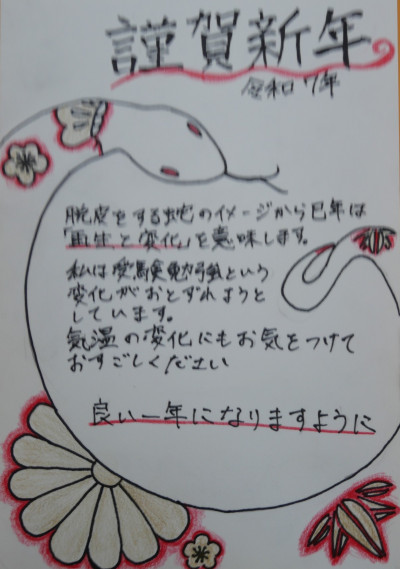 謹賀新年
令和7年
脱皮をする蛇のイメージから巳年は
「再生と変化」を意味します。
私は受験勉強という
変化がおとずれようと
しています。
気温の変化にもお気をつけて
おすごしください
良い一年になりますように